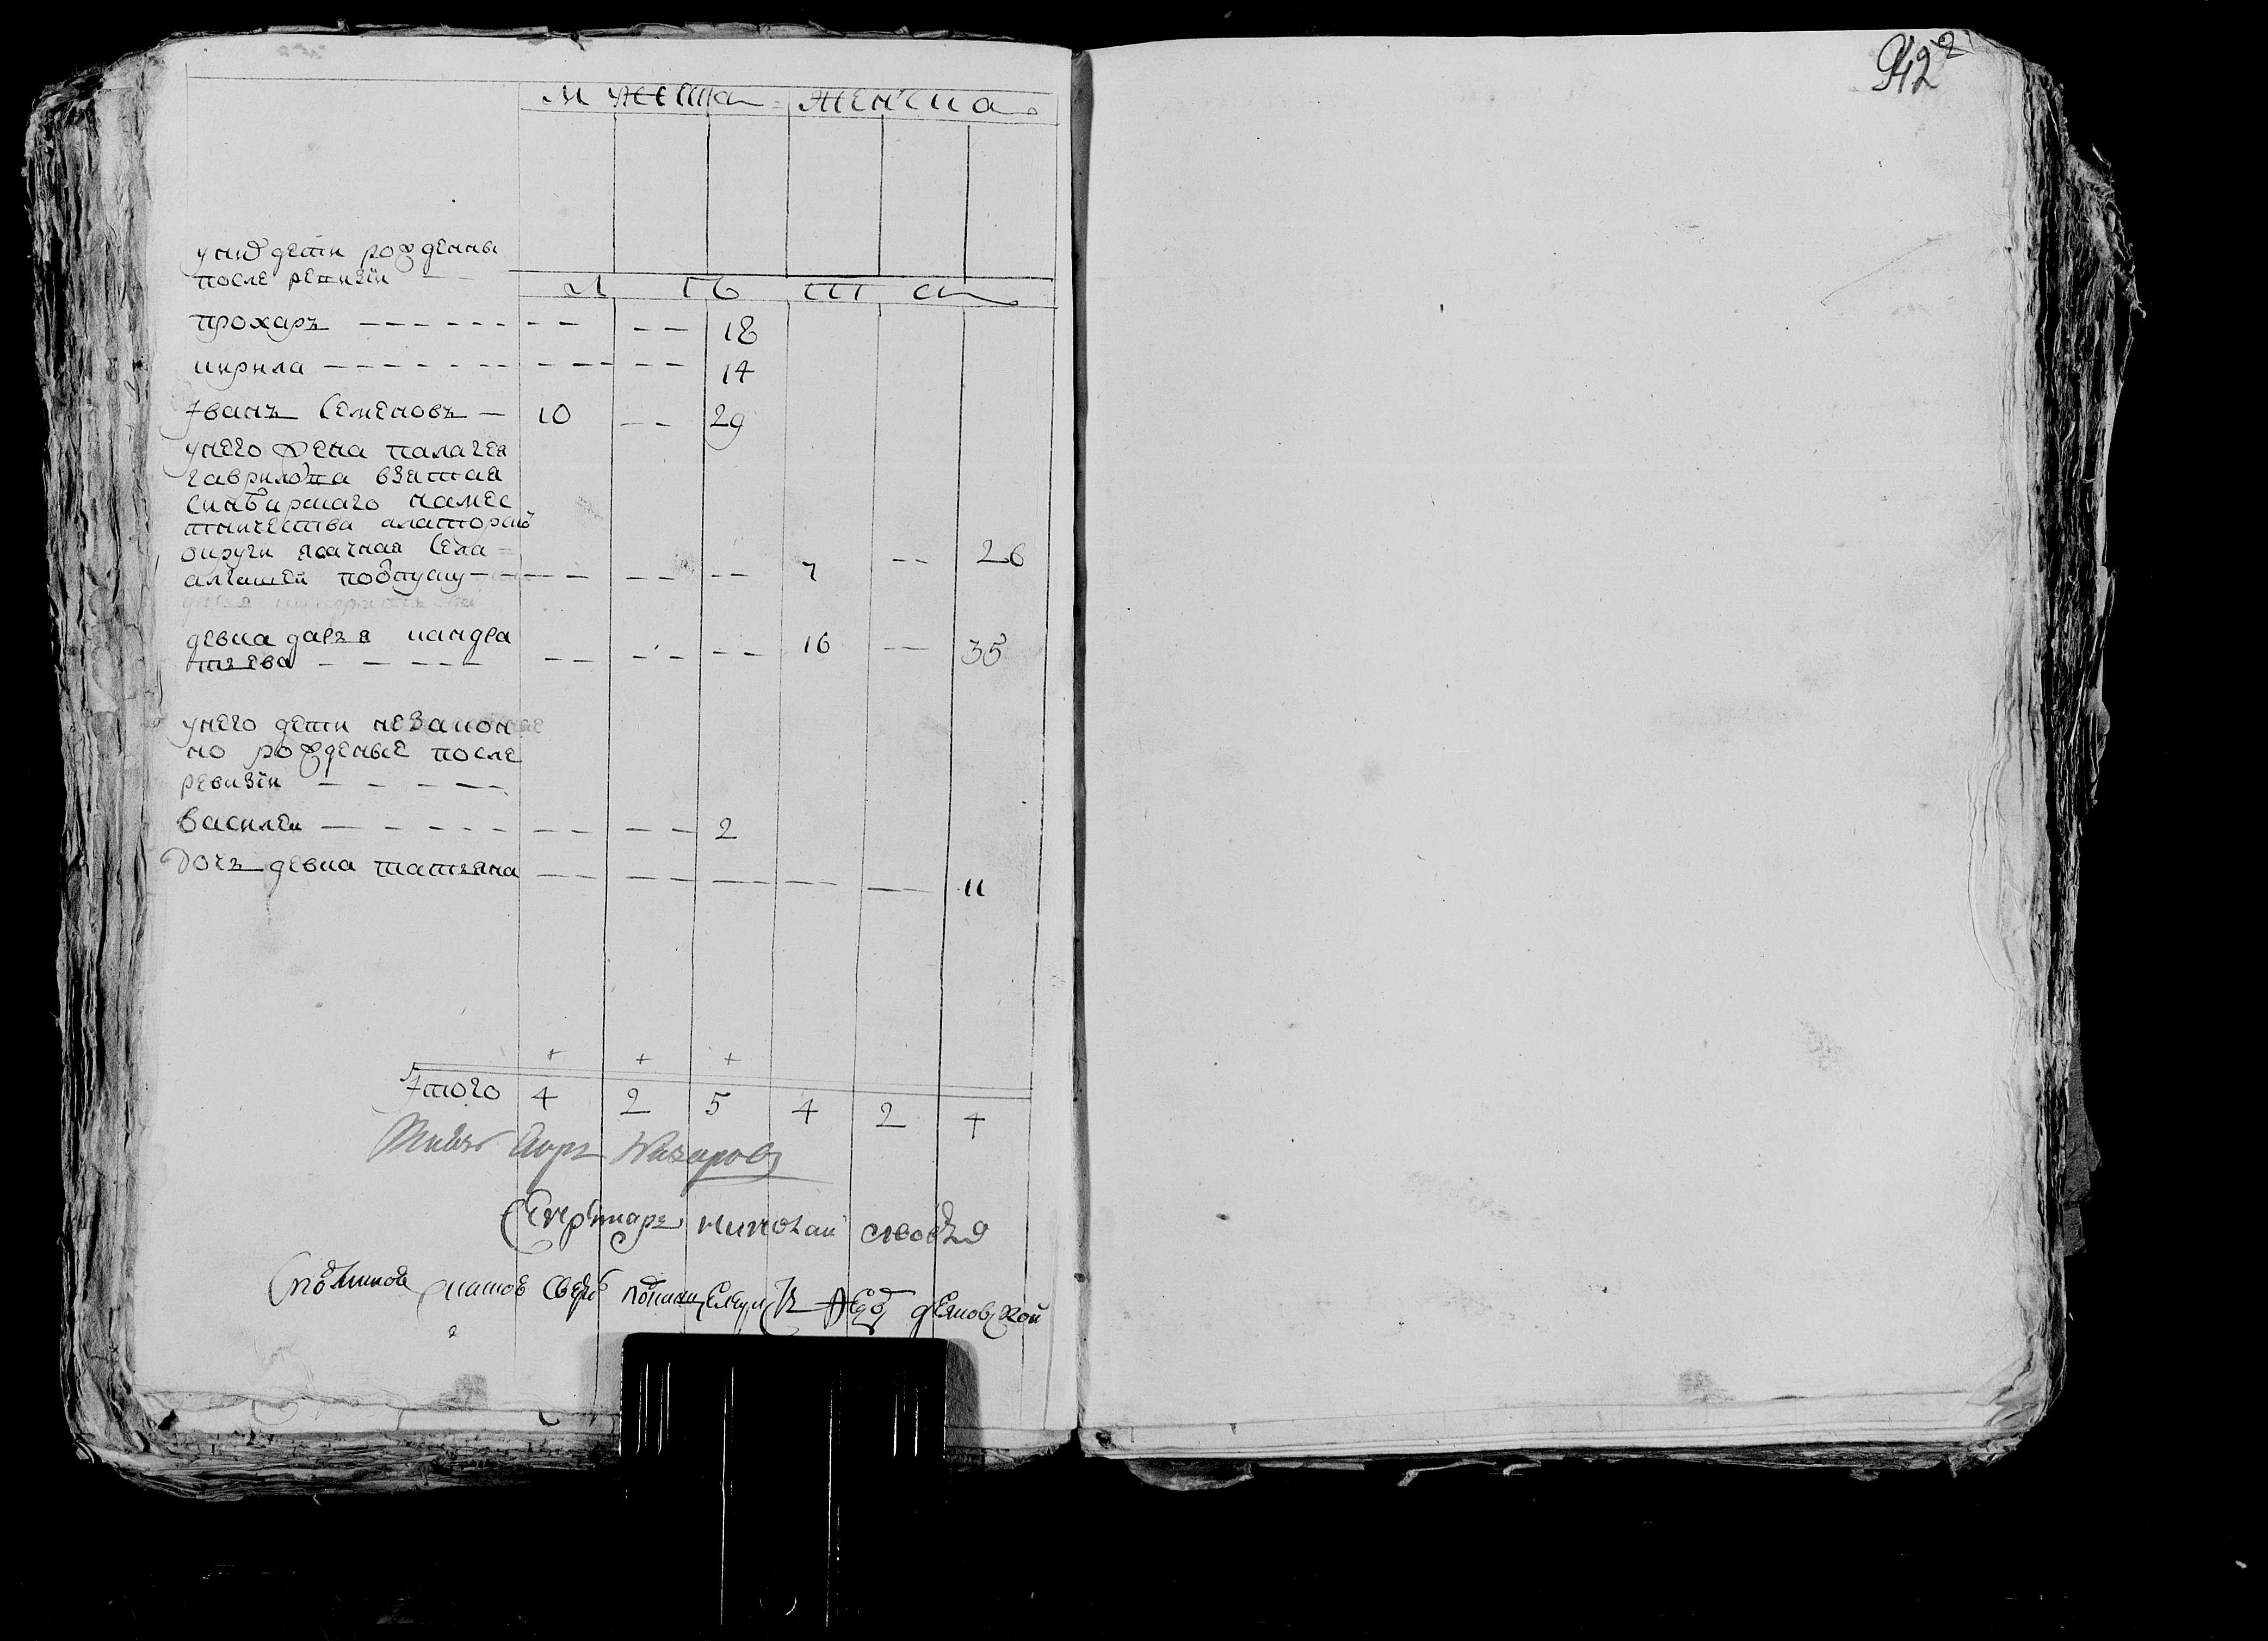 942 2
мужеска женска
у них дети рожденны
после ревизiи
лѣта
прохаръ 18
кирила 14
Iванъ Семеновъ 10 29
у него жена палагея
гаврилова взятая
синбирскаго намес
тничества алаторской
округи ясачная Села
алгашей по отпуску 7 26
девка дарья кандра
тьева 16 35
у него дети незакон
но рожденые после
ревизiи
василеи 2
дочь девка татьяна 11
Iтого 4 2 5 4 2 4
Назаровъ
Секретарь николаи